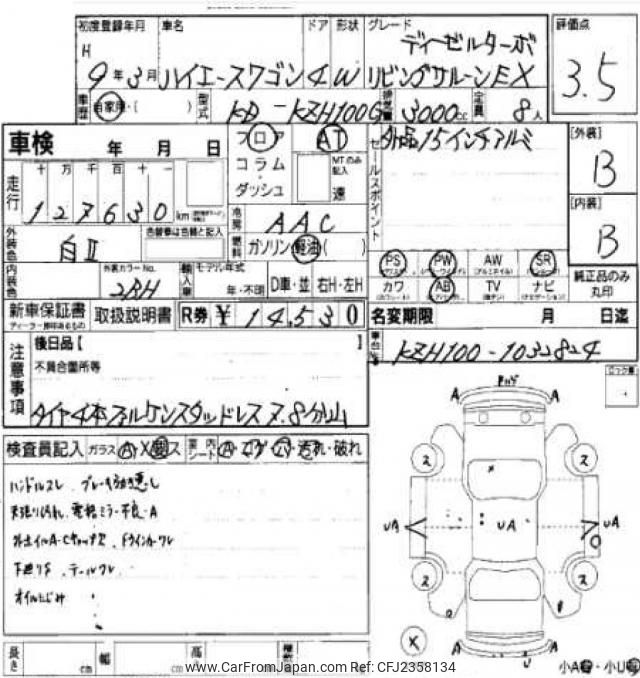 初度登録年月 車名 ドア 形状 グレード 評価点
H 9年3月 ハイエースワゴン 4 W ディーゼルターボ
リビングサルーンEX 3.5
車歴 自家用・( ) 型式 KD-KZH100G 排気量 3000cc 定員 8人
車検 年 月 日 フロア AT 外品15インチアルミ [外装]
コラム MTのみ記入 セールスポイント B
ダッシュ 速
走行 十万千百十一
127630 km
冷房 AAC [内装]
外装色 白II 色替車は色替と記入 燃料 ガソリン・軽油( ) B
内装色 外装カラーNo. 2BH 輸入車 モデル年式 年・不明 D車・並 右H・左H
PS PW AW SR
カワ AB TV ナビ 純正品のみ丸印
新車保証書 取扱説明書 R券 ¥ 14,530 名変期限 月 日迄
ディーラー捺印あるもの
車台No. KZH100-1032824
注意事項 後日品【 】
不具合箇所等
タイヤ4本ファルケンスタッドレス7.8分山
検査員記入 ガラス A・X・要ス 室内 シート
汚れ・破れ
ハンドルスレ
電格ミラー不良・A
下廻りS
オイルにじみ
A A
2 2
UA UA UA
2 2
X
A A
U
長さ cm 幅 cm 高さ cm
www.CarFromJapan.com Ref: CFJ2358134
小A ・小U